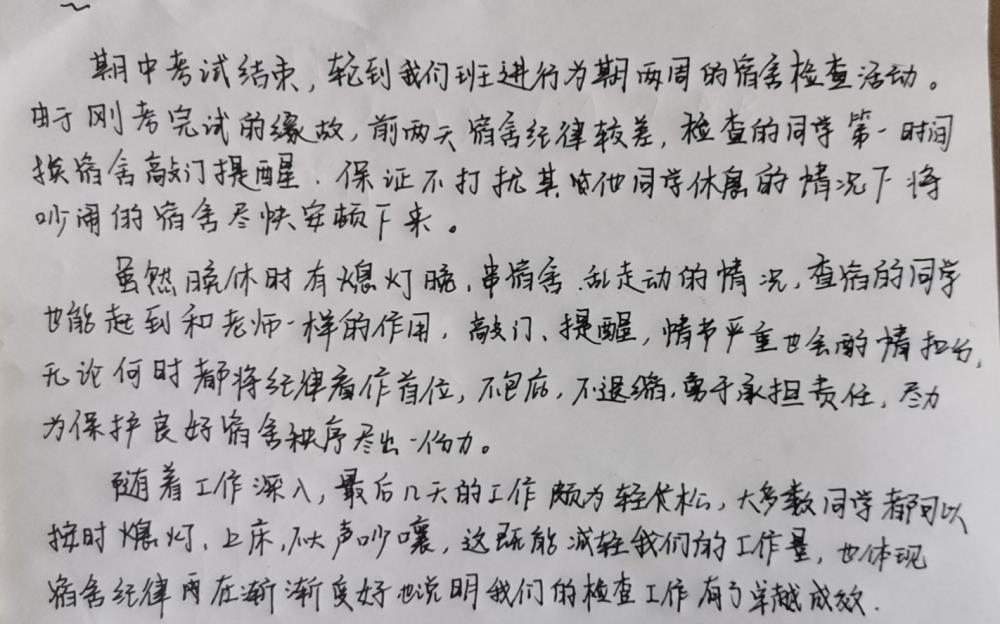 期中考试结束，轮到我们班进行为期两周的宿舍检查活动。
由于刚考完试的缘故，前两天宿舍纪律较差，检查的同学第一时间
挨宿舍敲门提醒．保证不打扰其他同学休息的情况下将
吵闹的宿舍尽快安顿下来。
虽然晚休时有熄灯晚，串宿舍、乱走动的情况，查宿的同学
也能起到和老师一样的作用，敲门、提醒，情节严重也会酌情扣分，
无论何时都将纪律看作首位，不包庇，不退缩，勇于承担责任，尽力
为保护良好宿舍秩序尽出一份力。
随着工作深入，最后几天的工作颇为轻松，大多数同学都可以
按时熄灯、上床，不大声吵嚷，这既能减轻我们的工作量，也体现
宿舍纪律再在渐渐变好也说明我们的检查工作有了卓越成效．